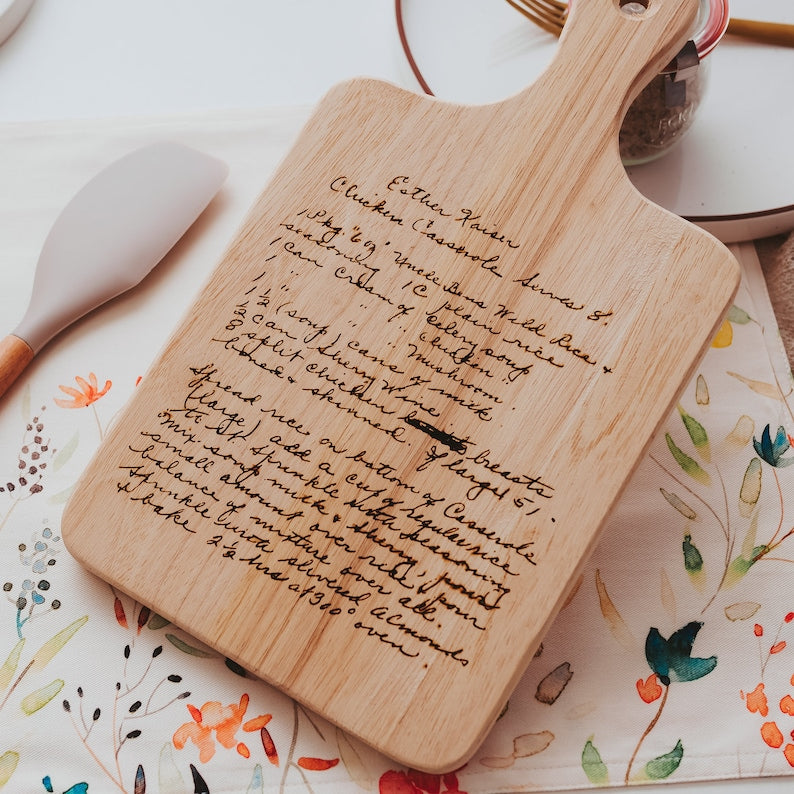 Esther Kaiser
Chicken Casserole Serves 8.
1 Pkg. "6 oz" Uncle Bens Wild Rice &
seasoning 1C plain rice
1 can Cream of Celery soup
1 " " " Chicken "
1 " " " Mushroom "
1½ (soup) cans of milk
½ can Sherry Wine
8 split chicken breasts
boned & skinned. If large 5!
Spread rice on bottom of Casserole
(large) add a cup of regular rice
to it sprinkle with seasoning
mix soup milk & sherry, pour
small amount over rice, pour
balance of mixture over all.
Sprinkle with slivered almonds
& bake 2½ hrs at 300° oven.